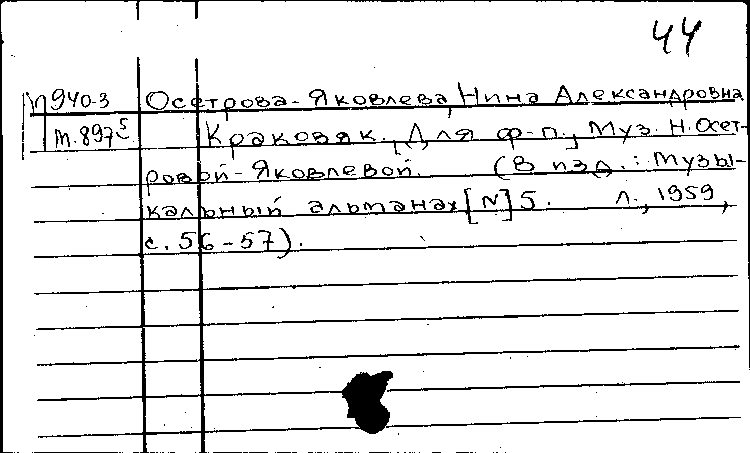 44
М940-3 Осетрова-Яковлева, Нина Александровна
м.897⁵ Краковяк. Для ф-п., Муз. Н. Осет-
ровой-Яковлевой. (В изд.: Музы-
кальный альманах [N] 5. Л., 1959,
с. 56-57).